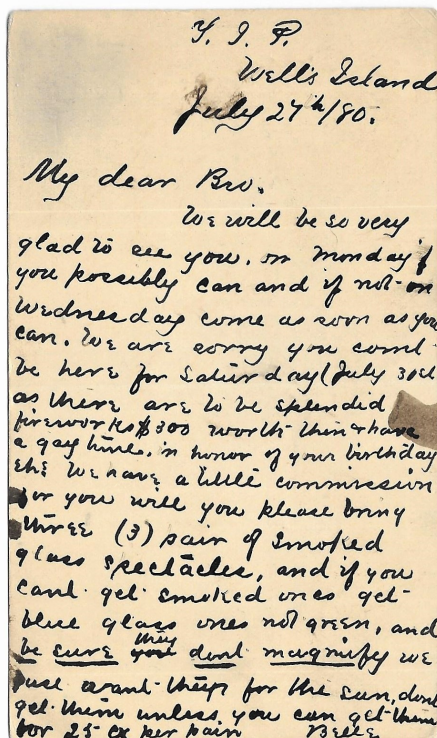 T. I. P.
Wells Island
July 27th/80.
My dear Bro.
We will be so very
glad to see you, on Monday if
you possibly can and if not on
Wednesday come as soon as you
can. We are sorry you cant
be here for Saturday (July 30th
as there are to be splendid
fireworks $300 worth then & have
a gay time, in honor of your birthday
eh? We have a little commission
for you will you please bring
three (3) pair of smoked
glass spectacles, and if you
cant get smoked ones get
blue glass ones not green, and
be sure they dont magnify we
just want them for the sun, dont
get them unless you can get them
for 25 cts per pair Belle